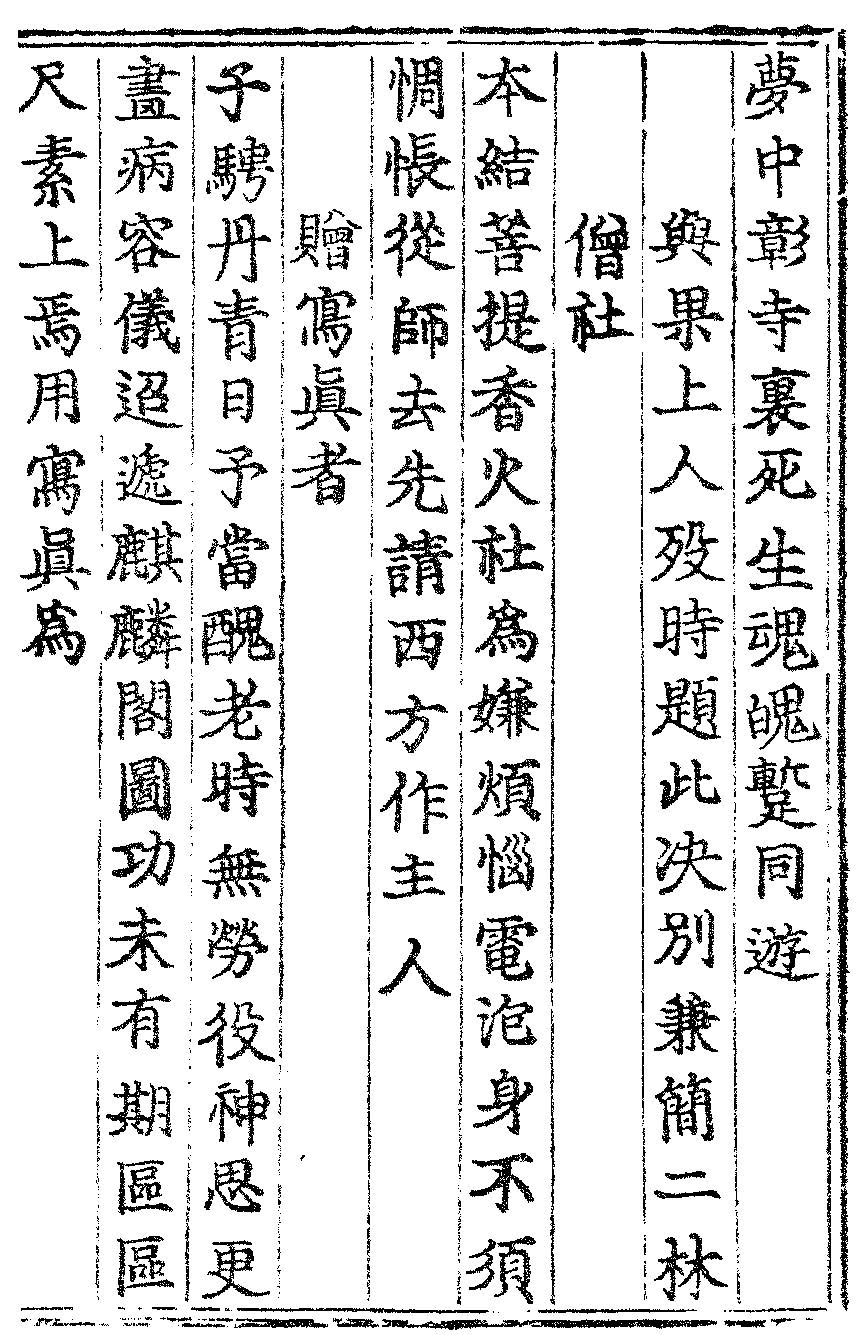 夢中彰寺裏死生魂魄蹔同遊
與果上人殁時題此决別兼簡二林
僧社
本結菩提香火社爲嫌煩惱電泡身不須
惆悵從師去先請西方作主人
贈寫眞者
子騁丹青日予當醜老時無勞役神思更
畫病容儀迢遞麒麟閣圖功未有期區區
尺素上焉用寫眞爲